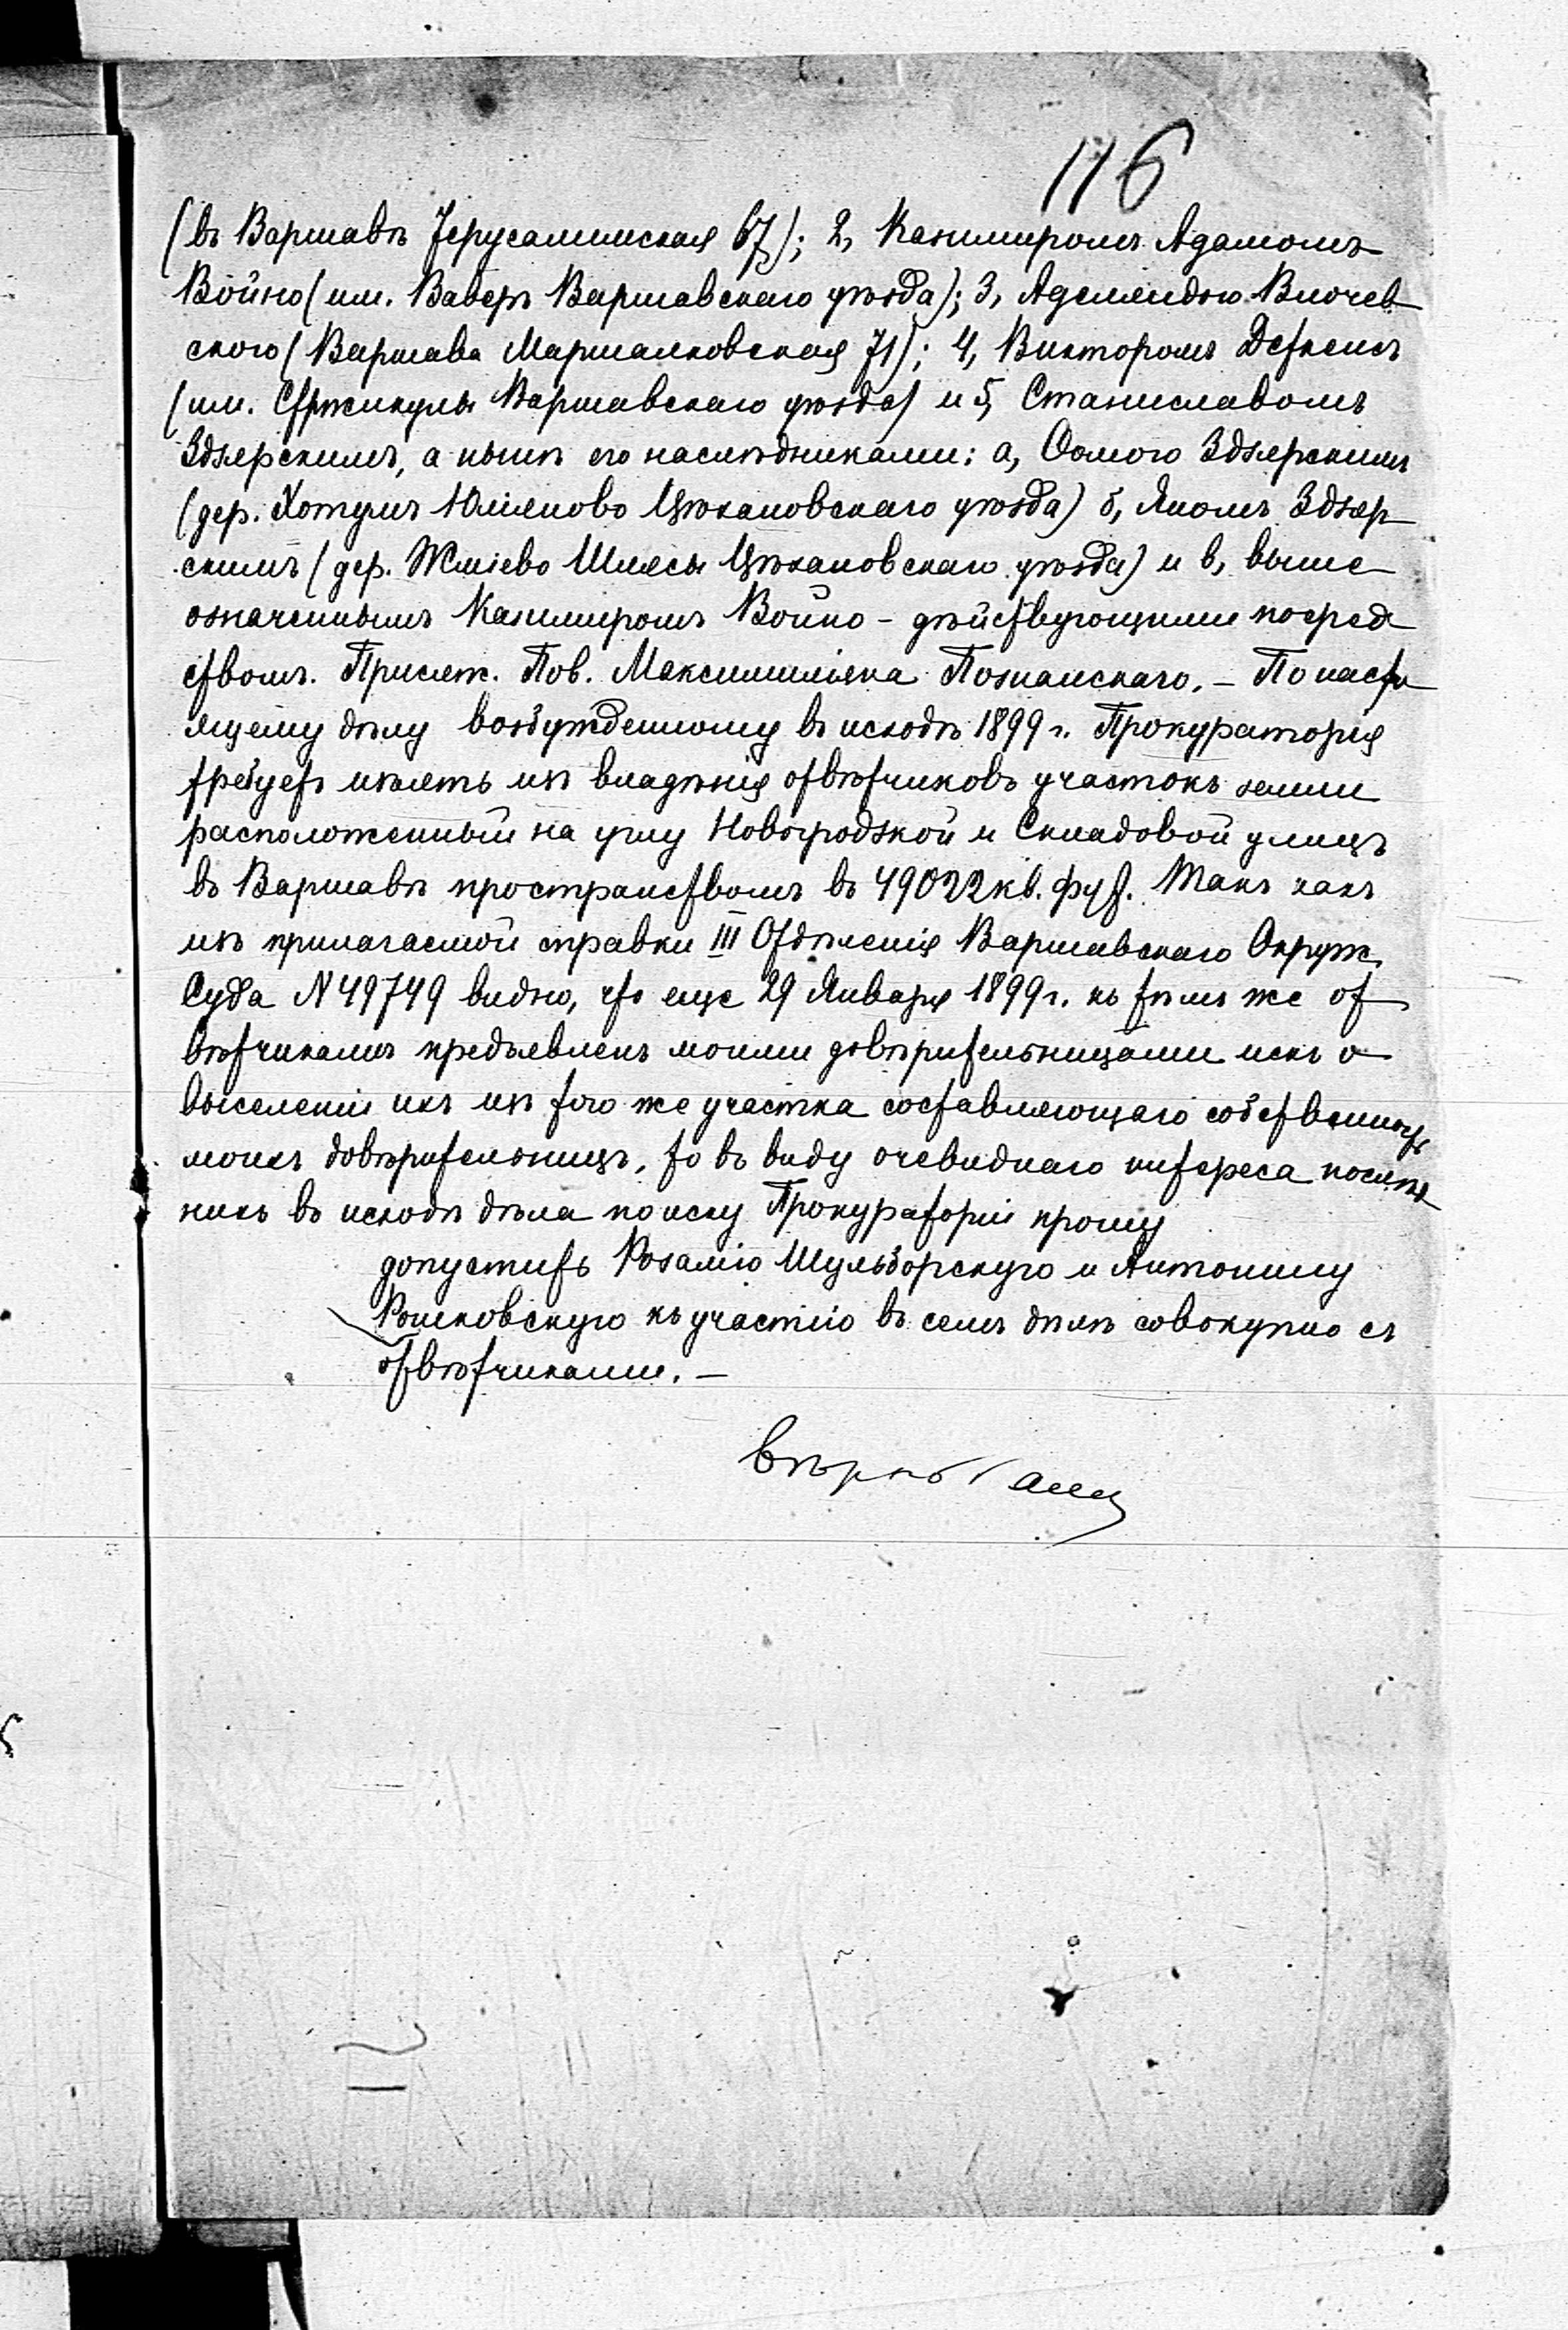 116
(въ Варшавѣ Іерусалимская 67); 2, Казимиромъ Адамомъ
Войно (им. Ваверъ Варшавскаго уѣзда); 3, Аделяидою Влочев
ского (Варшава Маршалковская 71); 4, Викторомъ
(им. Варшавскаго уѣзда) и 5, Станиславомъ
Здзярскимъ, а нынѣ его наслѣдниками: а, Ѳомою Здзярскимъ
(дер. Хотумъ Юліяново Цѣхановскаго уѣзда) б, Яномъ Здзяр
скимъ (дер. Жміево Цѣхановскаго уѣзда) и в, выше
означеннымъ Казимиромъ Войно - дѣйствующими посред
ствомъ Присяж. Пов. Максимиліяна Познанскаго. - По насто
ящему дѣлу возбужденному въ исходѣ 1899 г. Прокураторія
требуетъ изъять изъ владѣнія отвѣтчиковъ участокъ земли
расположенный на углу Новогродзкой и Складовой улицъ
въ Варшавѣ пространствомъ въ 49022 кв. фут. Такъ какъ
изъ прилагаемой справки III Отдѣленія Варшавскаго Окруж.
Суда N 49749 видно, что еще 29 Января 1899 г. къ тѣмъ же от
вѣтчикамъ предъявленъ моими довѣрительницами искъ о
выселеніи ихъ изъ того же участка составляющаго собственность
моихъ довѣрительницъ, то въ виду очевиднаго интереса послѣд
нихъ въ исходѣ дѣла по иску Прокураторіи прошу
допустить Розалію Шульборскую и Антонину
Рошковскую къ участію въ семъ дѣлѣ совокупно съ
отвѣтчиками. -
Вѣрно